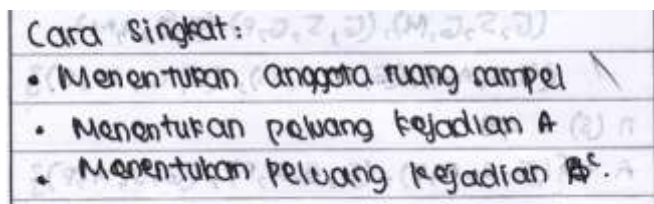 Cara singkat:
• Menentukan anggota ruang sampel
• Menentukan peluang kejadian A
• Menentukan peluang kejadian Aᶜ.